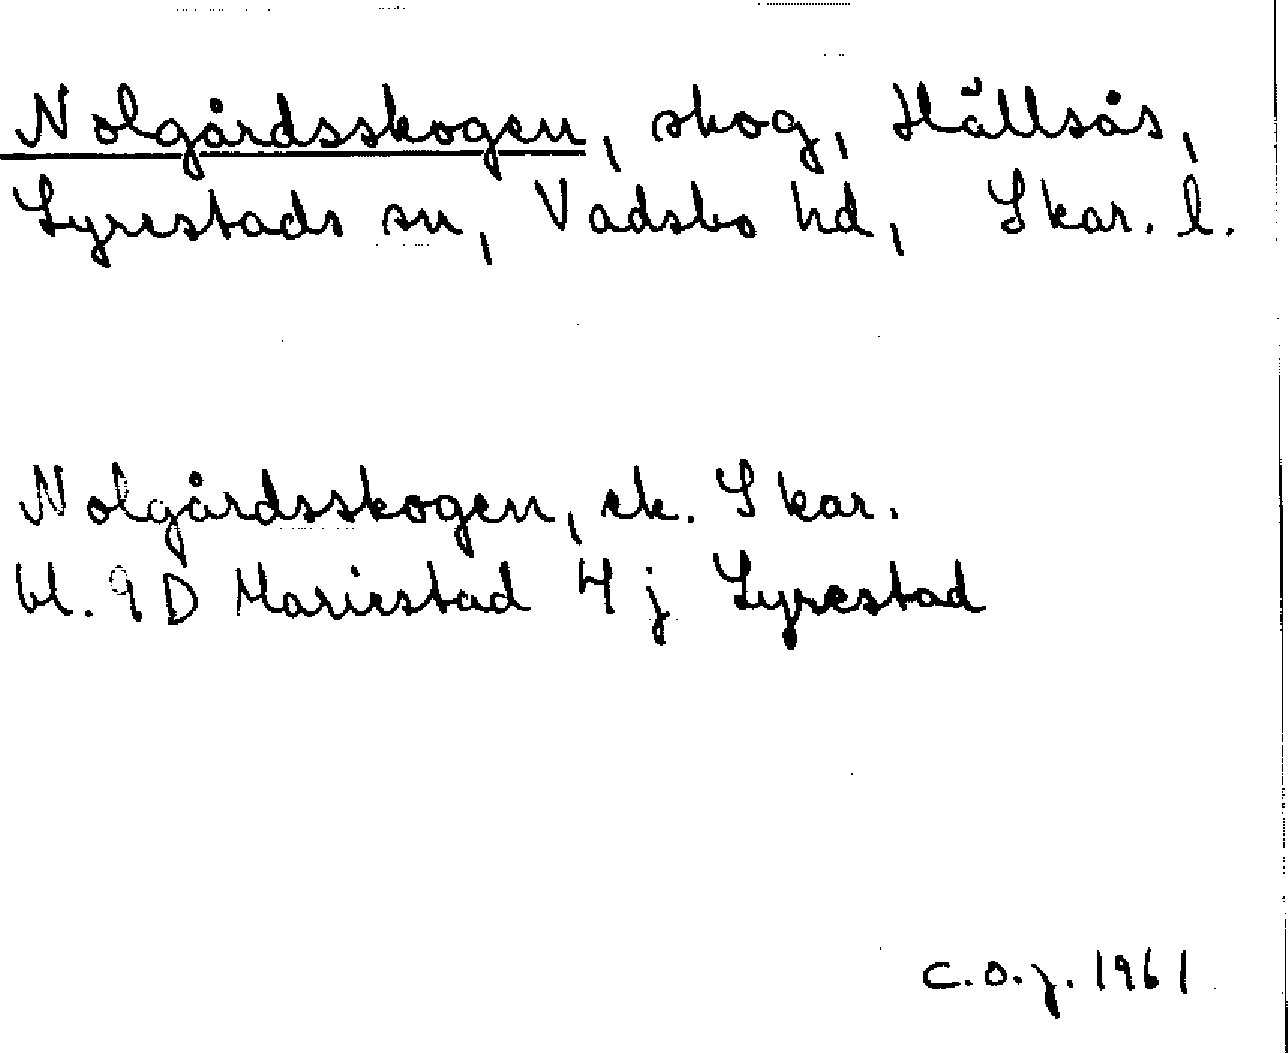 Nolgårdsskogen, skog, Hällsås,
Lyrestads sn, Vadsbo hd, Skar. l.
Nolgårdsskogen, ek. Skar.
bl. 9 D Mariestad 4 j Lyrestad
C.O.J. 1961